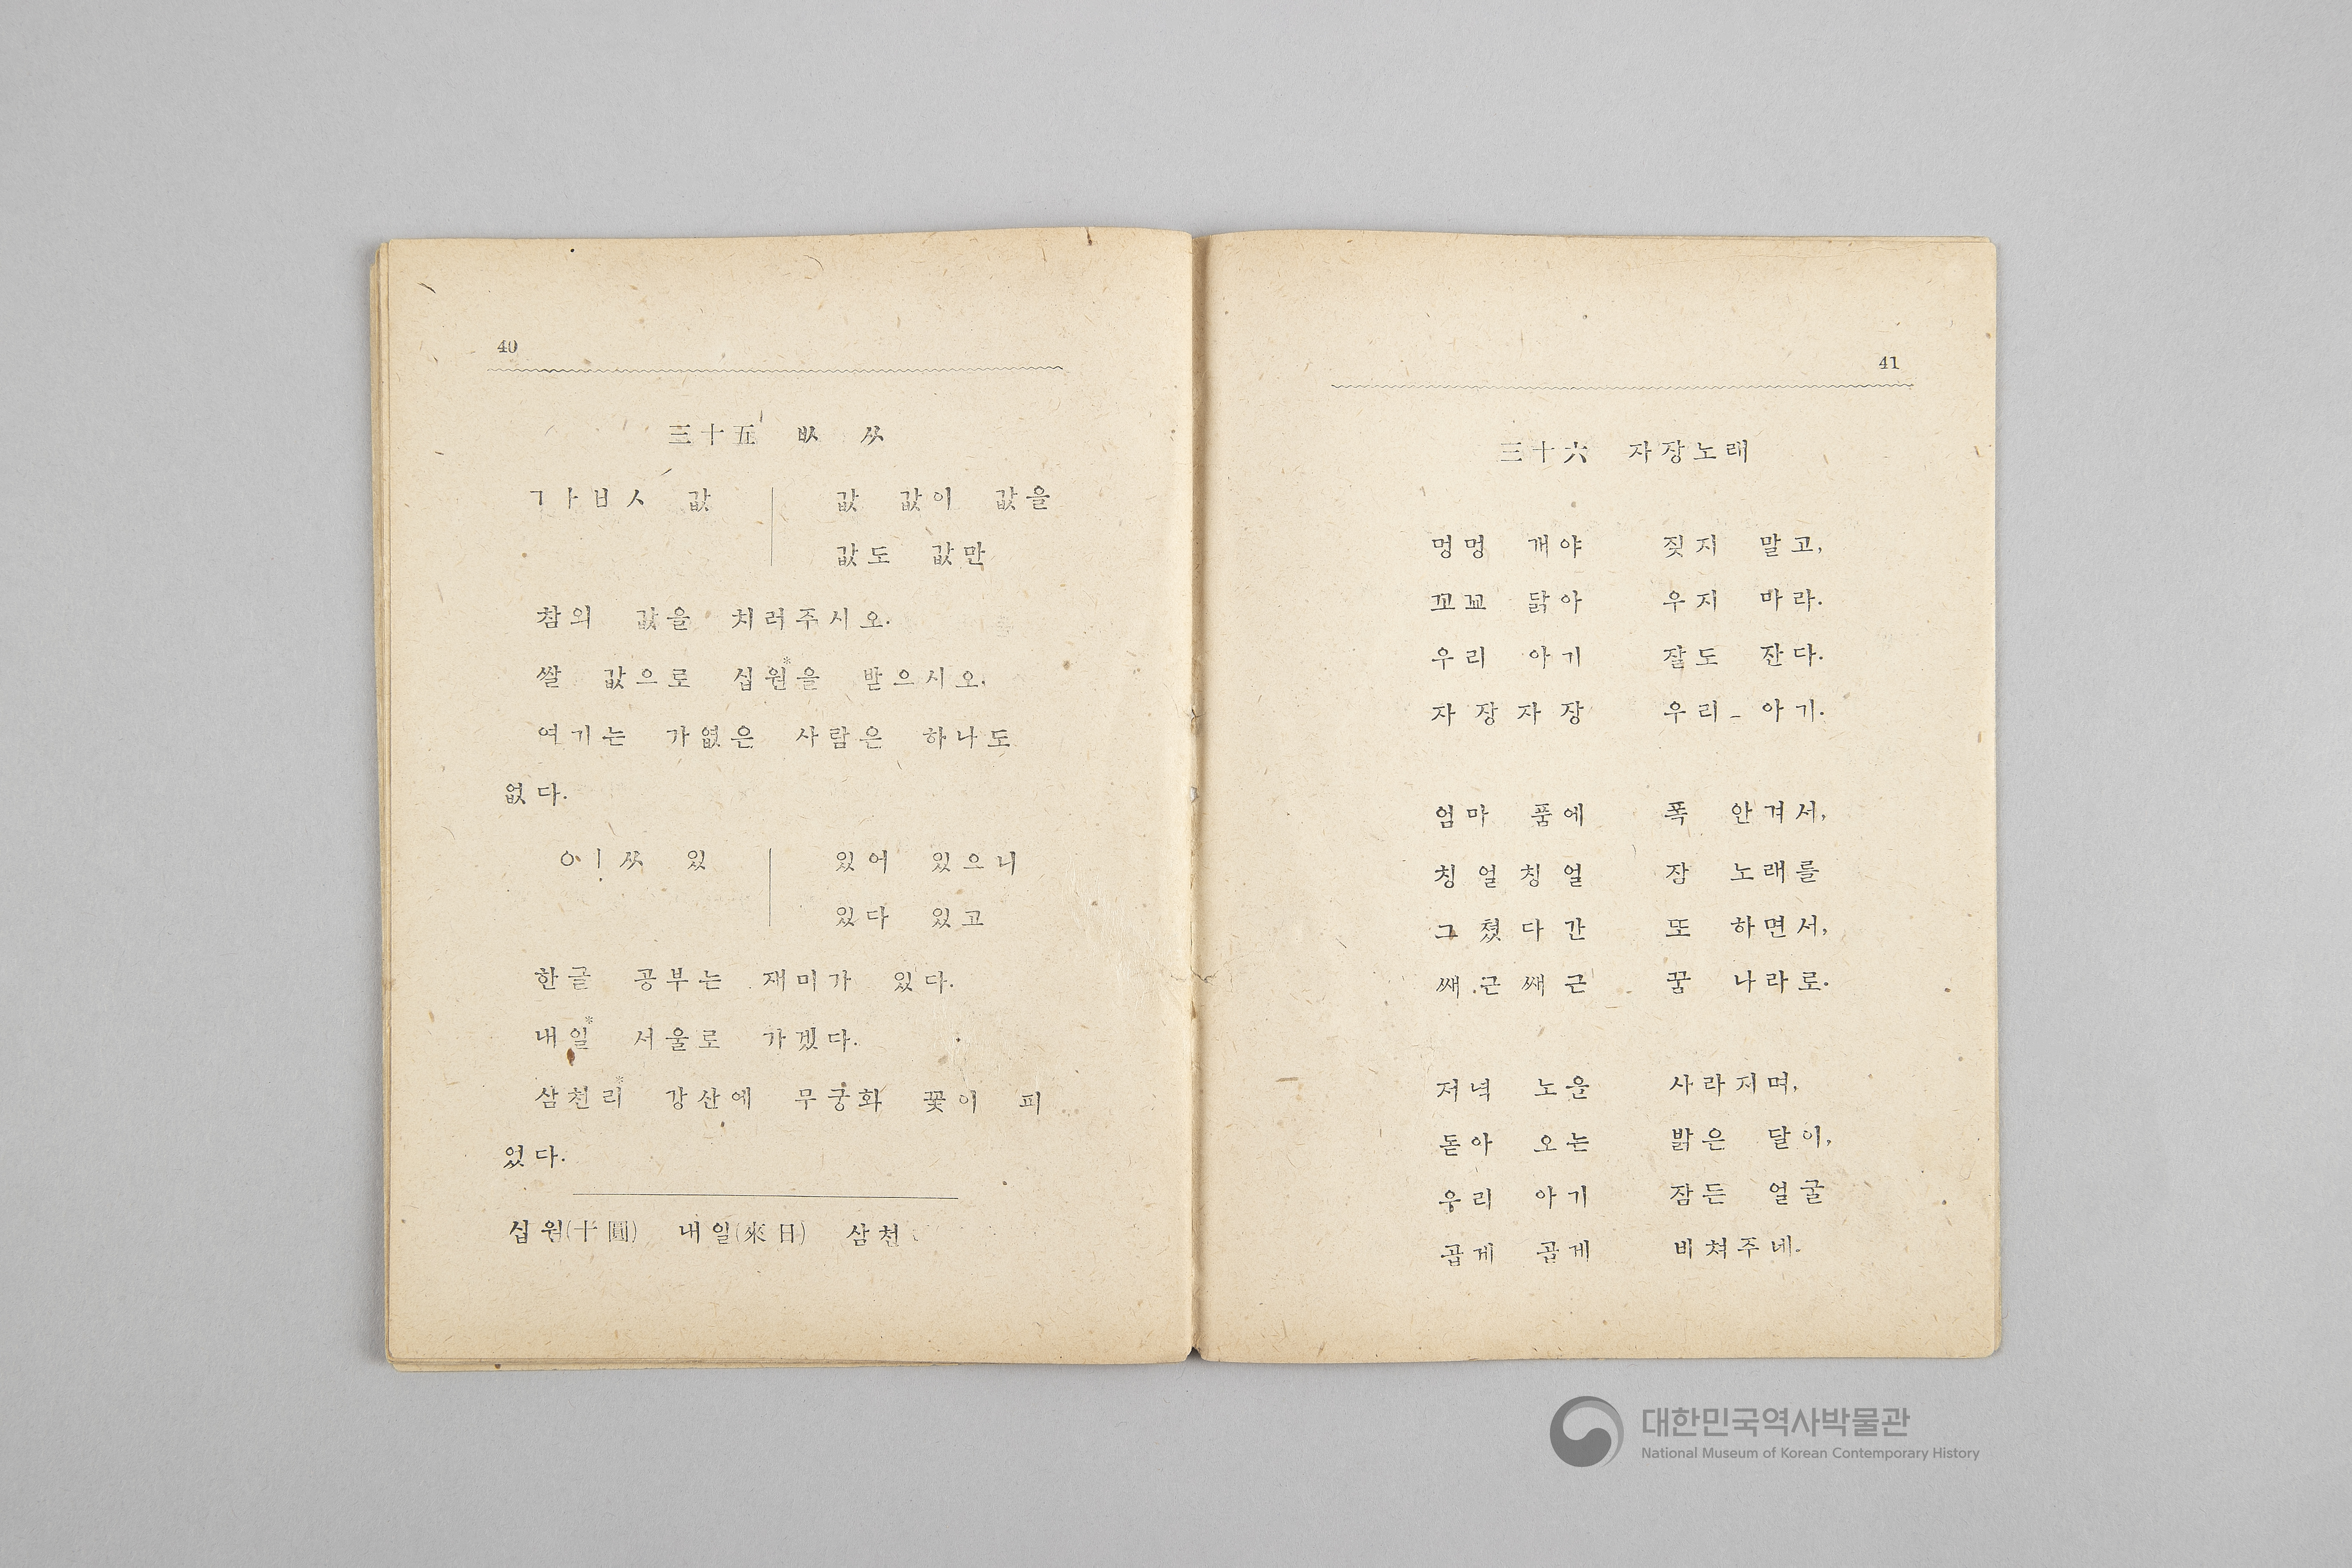 40
三十五 ㅄ ㅆ
ㄱㅏㅂㅅ 값 값 값이 값을
값도 값만
참외 값을 치러주시오.
쌀 값으로 십원*을 받으시오.
여기는 가엾은 사람은 하나도
없다.
ㅇㅣㅆ 있 있어 있으니
있다 있고
한글 공부는 재미가 있다.
내일* 서울로 가겠다.
삼천리* 강산에 무궁화 꽃이 피
었다.
십원(十圓) 내일(來日) 삼천
41
三十六 자장노래
멍멍 개야 짖지 말고,
꼬꼬 닭아 우지 마라.
우리 아기 잘도 잔다.
자장자장 우리 아기.
엄마 품에 폭 안겨서,
칭얼칭얼 잠 노래를
그쳤다간 또 하면서,
쌔근쌔근 꿈 나라로.
저녁 노을 사라지며,
돋아 오는 밝은 달이,
우리 아기 잠든 얼굴
곱게 곱게 비쳐주네.
대한민국역사박물관
National Museum of Korean Contemporary History